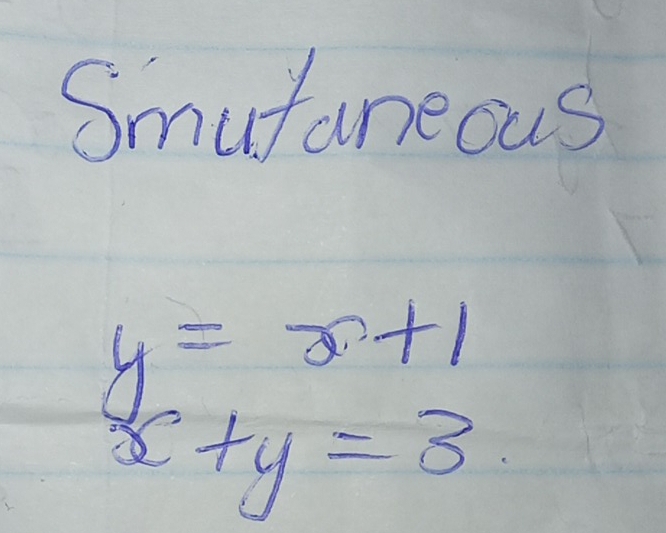 Smutaneous
y = x + 1
x + y = 3.